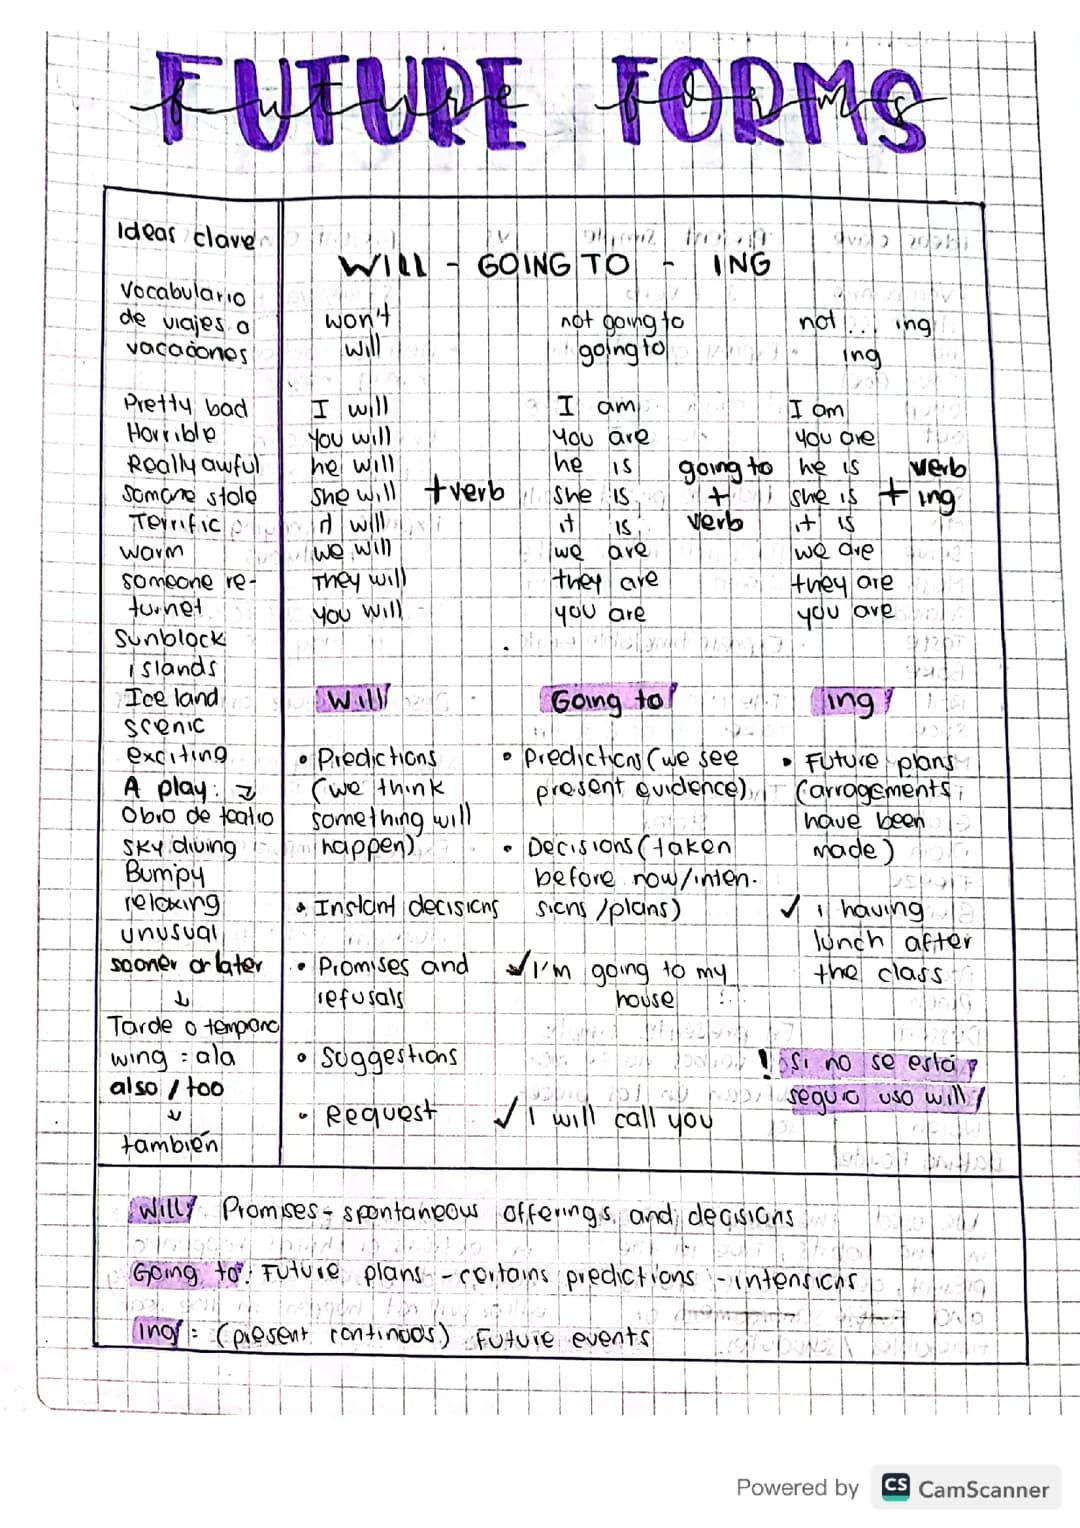 FUTURE FORMS
future forms
Ideas clave
WILL - GOING TO - ING
Vocabulario
de viajes o
vacaciones
won't
will
not going to
going to
not ... ing
ing
Pretty bad
Horrible
Really awful
Somone stole
Terrific
warm
someone re-
turnet
Sunblock
islands
Ice land
scenic
exciting
A play:
Obra de teatro
Sky diving
Bumpy
relaxing
unusual
sooner or later
↓
Tarde o temprano
wing = ala
also / too
↓
también
I will
You will
he will
She will
it will
we will
They will
you will
+verb
I am
you are
he is
she is
it is
we are
they are
you are
going to
+
verb
I am
you are
he is
she is
it is
we are
they are
you are
+ verb
ing
Will
• Predictions
(we think
something will
happen)
• Instant decisions
• Promises and
refusals
• Suggestions
• Request
✓ I will call you
Going to
• Predictions (we see
present evidence)
• Decisions (taken
before now/inten-
sions /plans)
✓ I'm going to my
house
ing
• Future plans
(arragements
have been
made)
✓ i having
lunch after
the class
! Si no se está
seguro uso will
Will: Promises - spontaneous offerings and decisions
Going to: Future plans - certains predictions - intensions
Ing: (present continuos) Future events
Powered by CS CamScanner